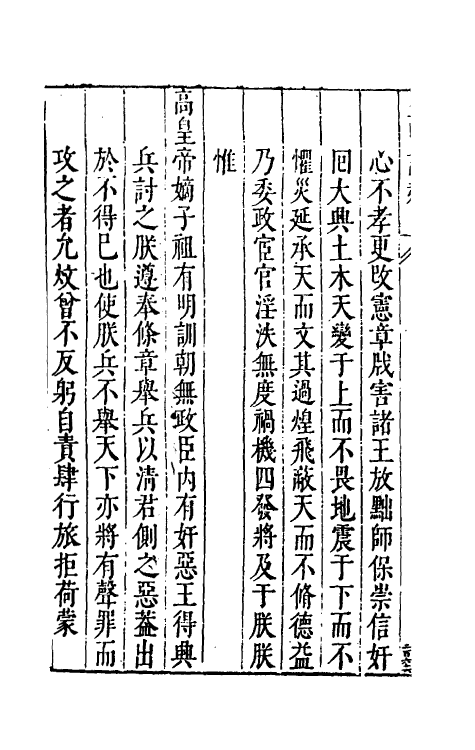 心不孝更改憲章戕害諸王放黜師保崇信奸
回大興土木天變于上而不畏地震于下而不
懼災延承天而文其過煌飛蔽天而不脩德益
乃委政宦官淫泆無度禍機四發將及于朕朕
惟
高皇帝嫡子祖有明訓朝無政臣内有奸惡王得興
兵討之朕遵奉條章舉兵以清君側之惡葢出
於不得已也使朕兵不舉天下亦將有聲罪而
攻之者允炆曾不反躬自責肆行旅拒荷蒙